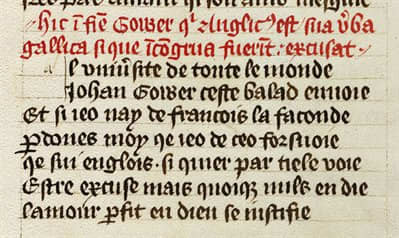 hic i͞ fi͞e Gower qꝛ Anglic᷒ est sua v͛ba
gallica si que i͞congrua fueri͞t. excusat.
l vniu͛site de toute le monde
Johan Gower ceste balad enuoie
Et si ieo nay de francois la faconde
ꝑdones moy qe ieo de ceo forsuoie
qe sui englois. si quier par tiele voie
Estre excuse mais quoiqe nuls en die
lamour ꝑfit en dieu se iustifie